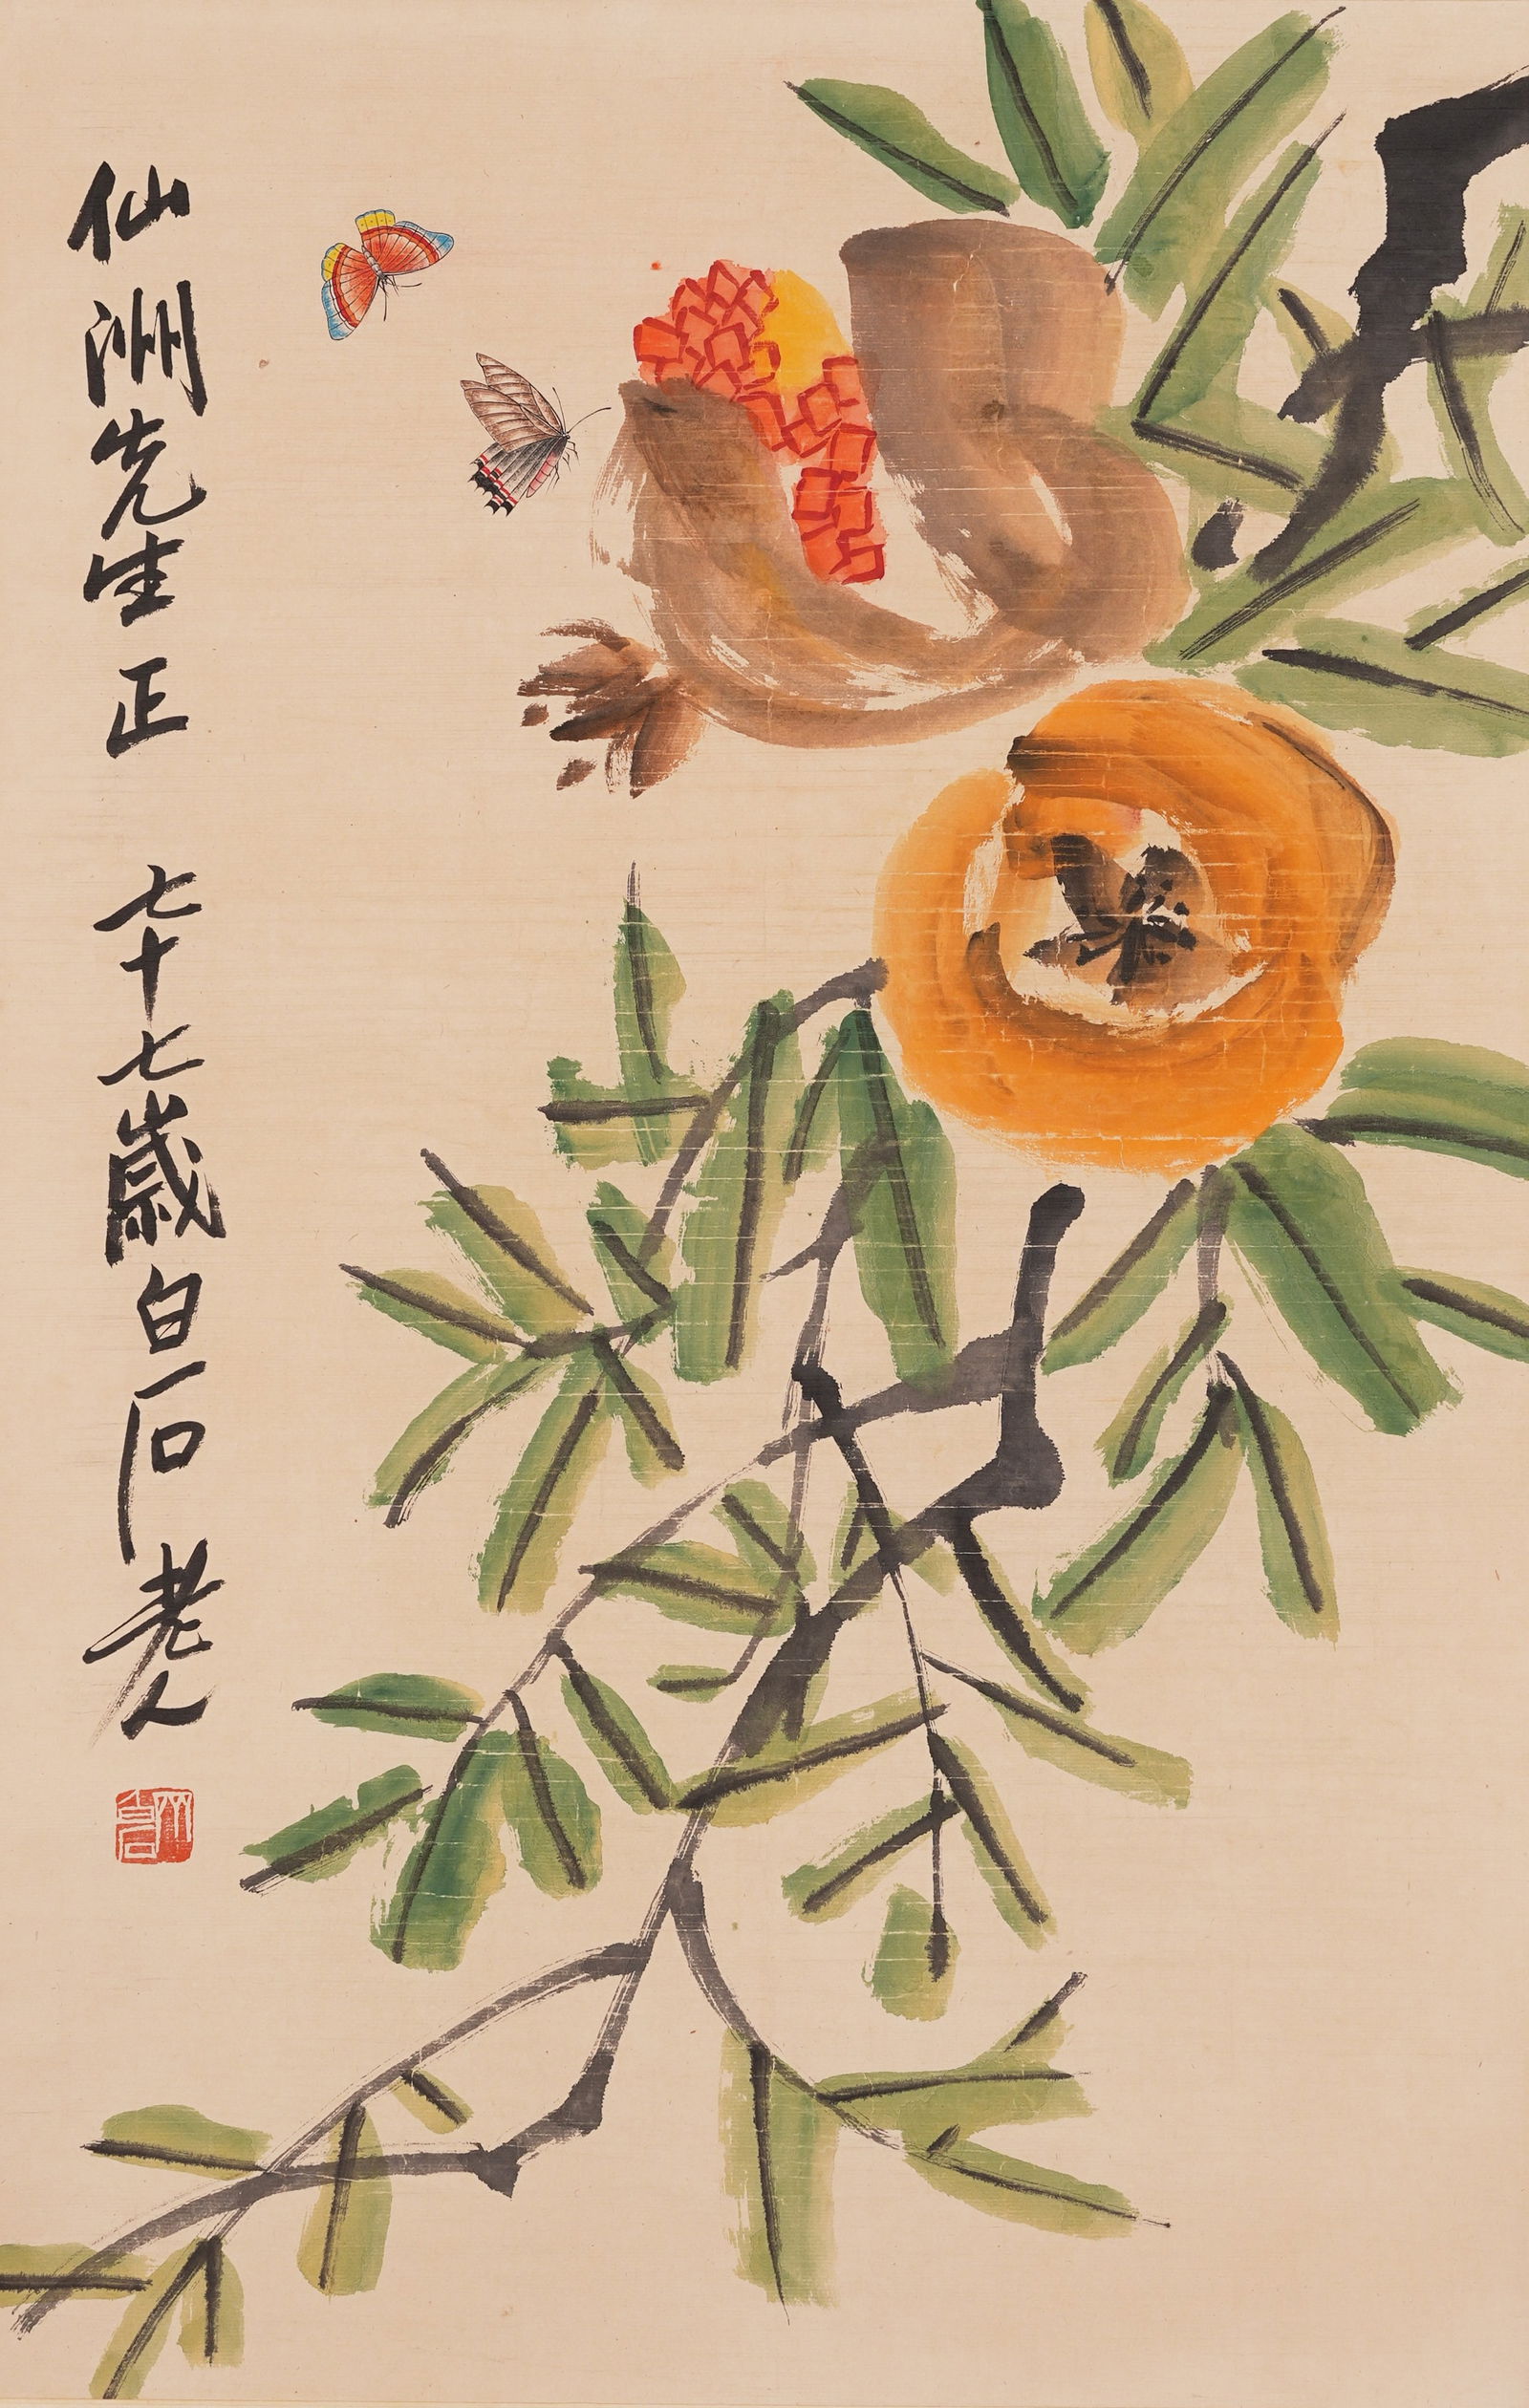 仙洲先生正 七十七歲白石老人
白石